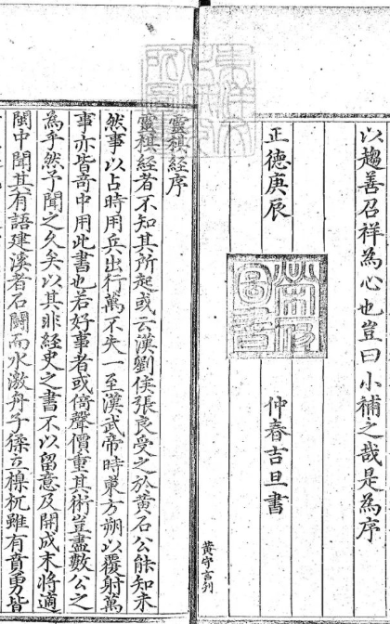 以趨善召祥為心也豈曰小補之哉是為序
正德庚辰
仲春吉旦書
黃守言刊
靈棋經序
靈棋經者不知其所起或云漢劉侯張良受之於黃石公能知未
然事以占時用兵出行萬不失一至漢武帝時東方朔以覆射萬
事亦皆奇中用此書也若好事者或倚聲價重其術豈盡數公之
為乎然予聞之久矣以其非經史之書不以留意及開成末將適
閩中聞其有語建溪者石鬪而水激舟子徭立橰杌雖有賁勇皆